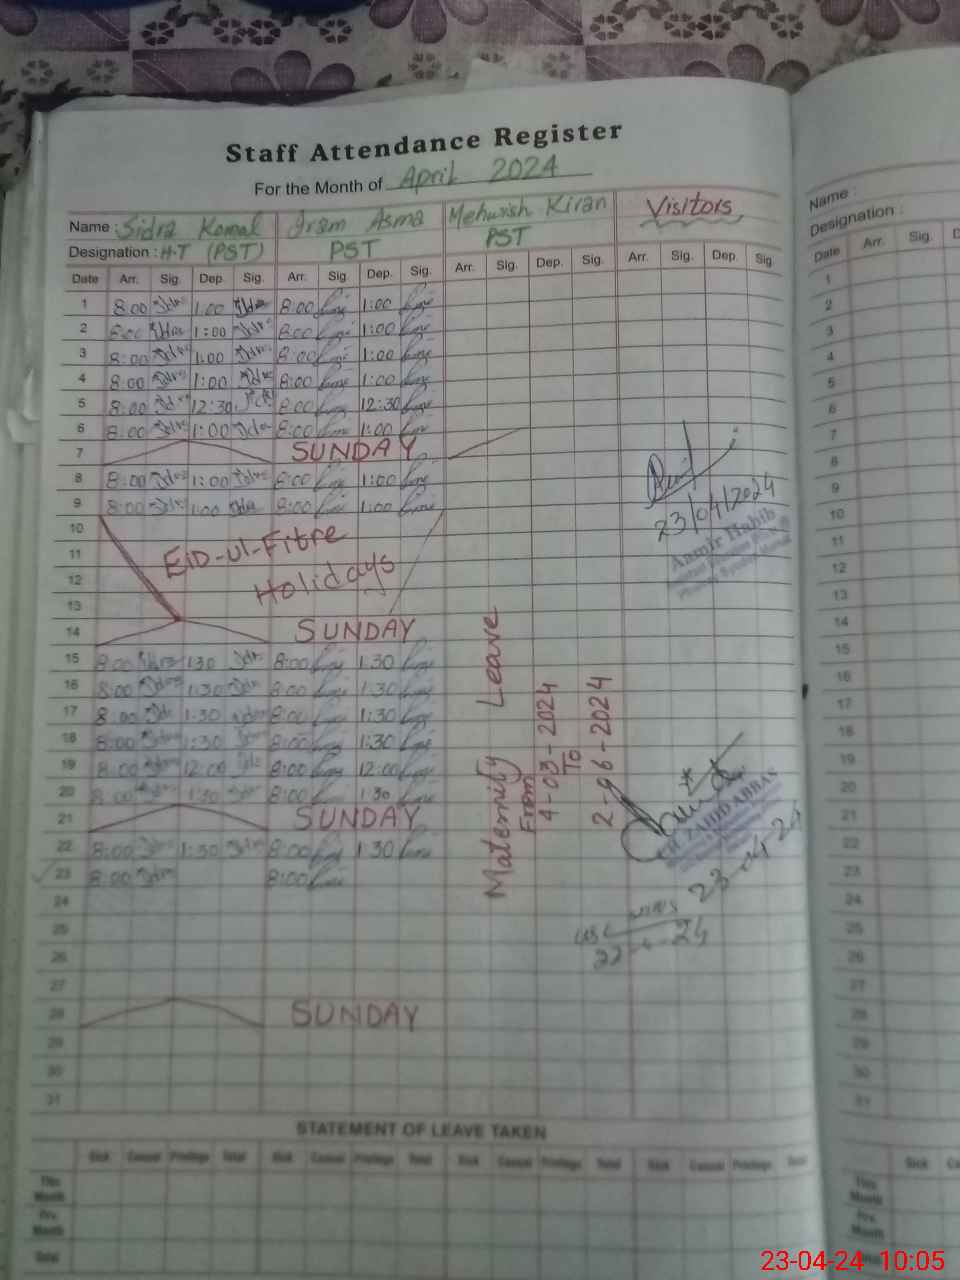 Staff Attendance Register
For the Month of April 2024
Name : Sidra Komal Iram Asma Mehwish Kiran Visitors Name :
Designation : H.T (PST) PST PST Designation :
Date Arr. Sig. Dep. Sig. Arr. Sig. Dep. Sig. Arr. Sig. Dep. Sig. Arr. Sig. Dep. Sig. Date Arr. Sig.
1 8:00 1:00 8:00 1:00 1
2 8:00 1:00 8:00 1:00 2
3 8:00 1:00 8:00 1:00 3
4 8:00 1:00 8:00 1:00 4
5 8:00 12:30 8:00 12:30 5
6 8:00 1:00 8:00 1:00 6
7 SUNDAY 7
8 8:00 1:00 8:00 1:00 8
9 8:00 1:00 8:00 1:00 9
23/04/2024
Aamir Habib
10 10
11 Eid-ul-Fitre 11
12 Holidays 12
13 13
14 SUNDAY 14
15 8:00 1:30 8:00 1:30 15
16 8:00 1:30 8:00 1:30 16
17 8:00 1:30 8:00 1:30 17
18 8:00 1:30 8:00 1:30 18
19 8:00 12:00 8:00 12:00 19
20 8:00 1:30 8:00 1:30 20
21 SUNDAY 21
22 8:00 1:30 8:00 1:30 22
23 8:00 8:00 23
24 24
25 25
26 26
27 27
28 SUNDAY 28
29 29
30 30
31 31
Maternity Leave
From
4-03-2024
To
2-06-2024
ZAHID ABBAS
23-04-24
22-4-24
STATEMENT OF LEAVE TAKEN
Sick Casual Privilege Total Sick Casual Privilege Total Sick Casual Privilege Total Sick Casual Privilege Total Sick
This Month This Month
Prv. Month Prv. Month
Total Total
23-04-24 10:05